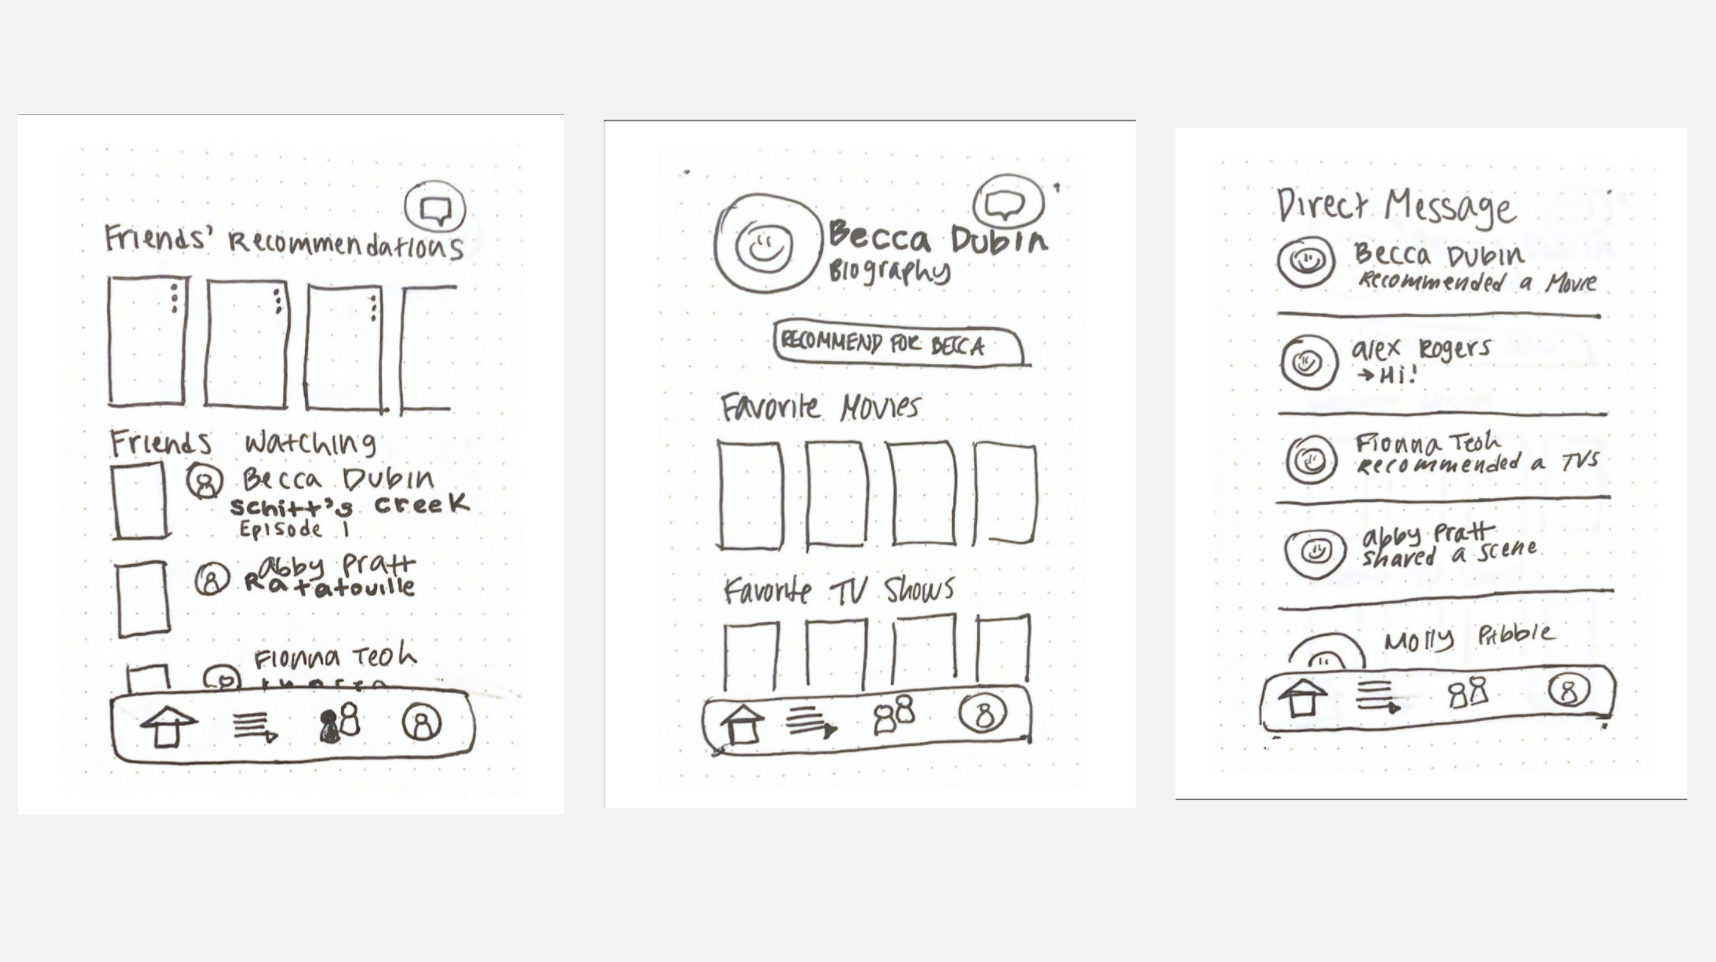 Friends' Recommendations
Friends Watching
Becca Dubin
Schitt's Creek
Episode 1
abby Pratt
Ratatouille
Fionna Teoh
Becca Dubin
Biography
RECOMMEND FOR BECCA
Favorite Movies
Favorite TV Shows
Direct Message
Becca Dubin
Recommended a Movie
alex Rogers
→Hi!
Fionna Teoh
recommended a TVS
abby Pratt
shared a scene
Molly Pribble